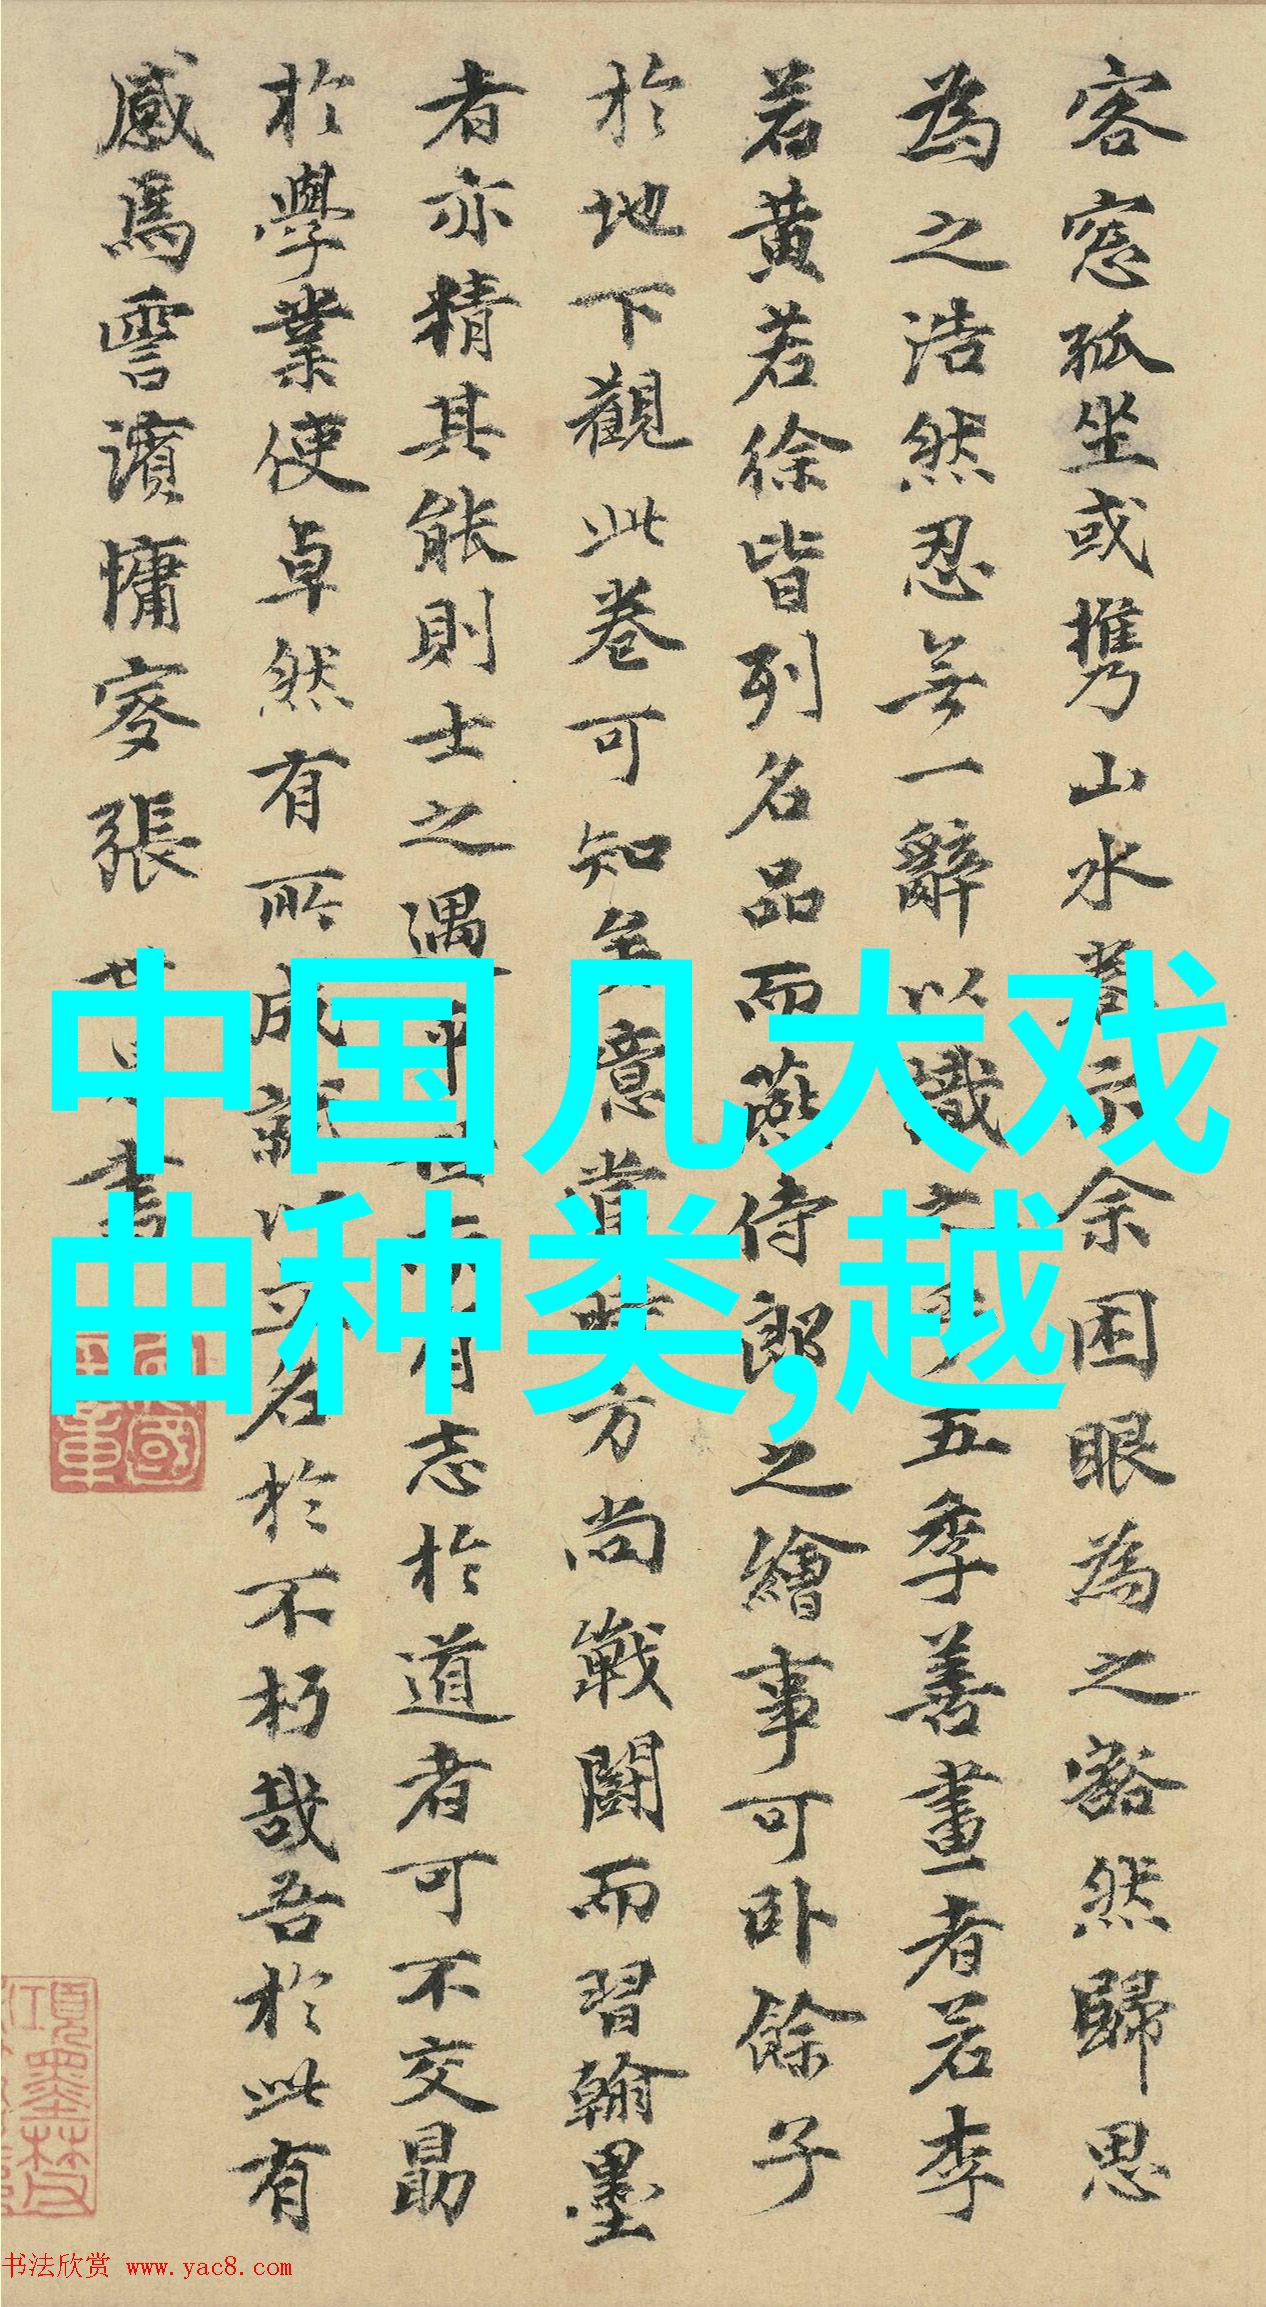 客窓孤坐或携山水卷示余困眼為之豁然歸思
為之浩然忍無一辭以識之乎五季善畫者若李
若黄若徐皆列名品而燕侍郎之繪事可卧餘子
於地下觀此卷可知矣意當時方尚戰鬪而習翰墨
者亦精其能則士之遇乎世而有志於道者可不交勗
於學業使卓然有所成就以立名於不朽哉吾於此有
感焉雪濱慵叟張世昌書
中国几大戏
曲种类,越
书法欣赏 www.yac8.com